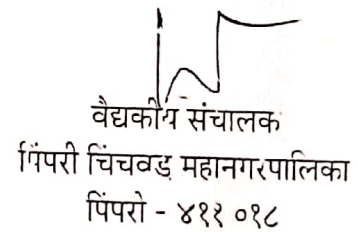 वैद्यकीय संचालक
पिंपरी चिंचवड महानगरपालिका
पिंपरी - ४११ ०१८